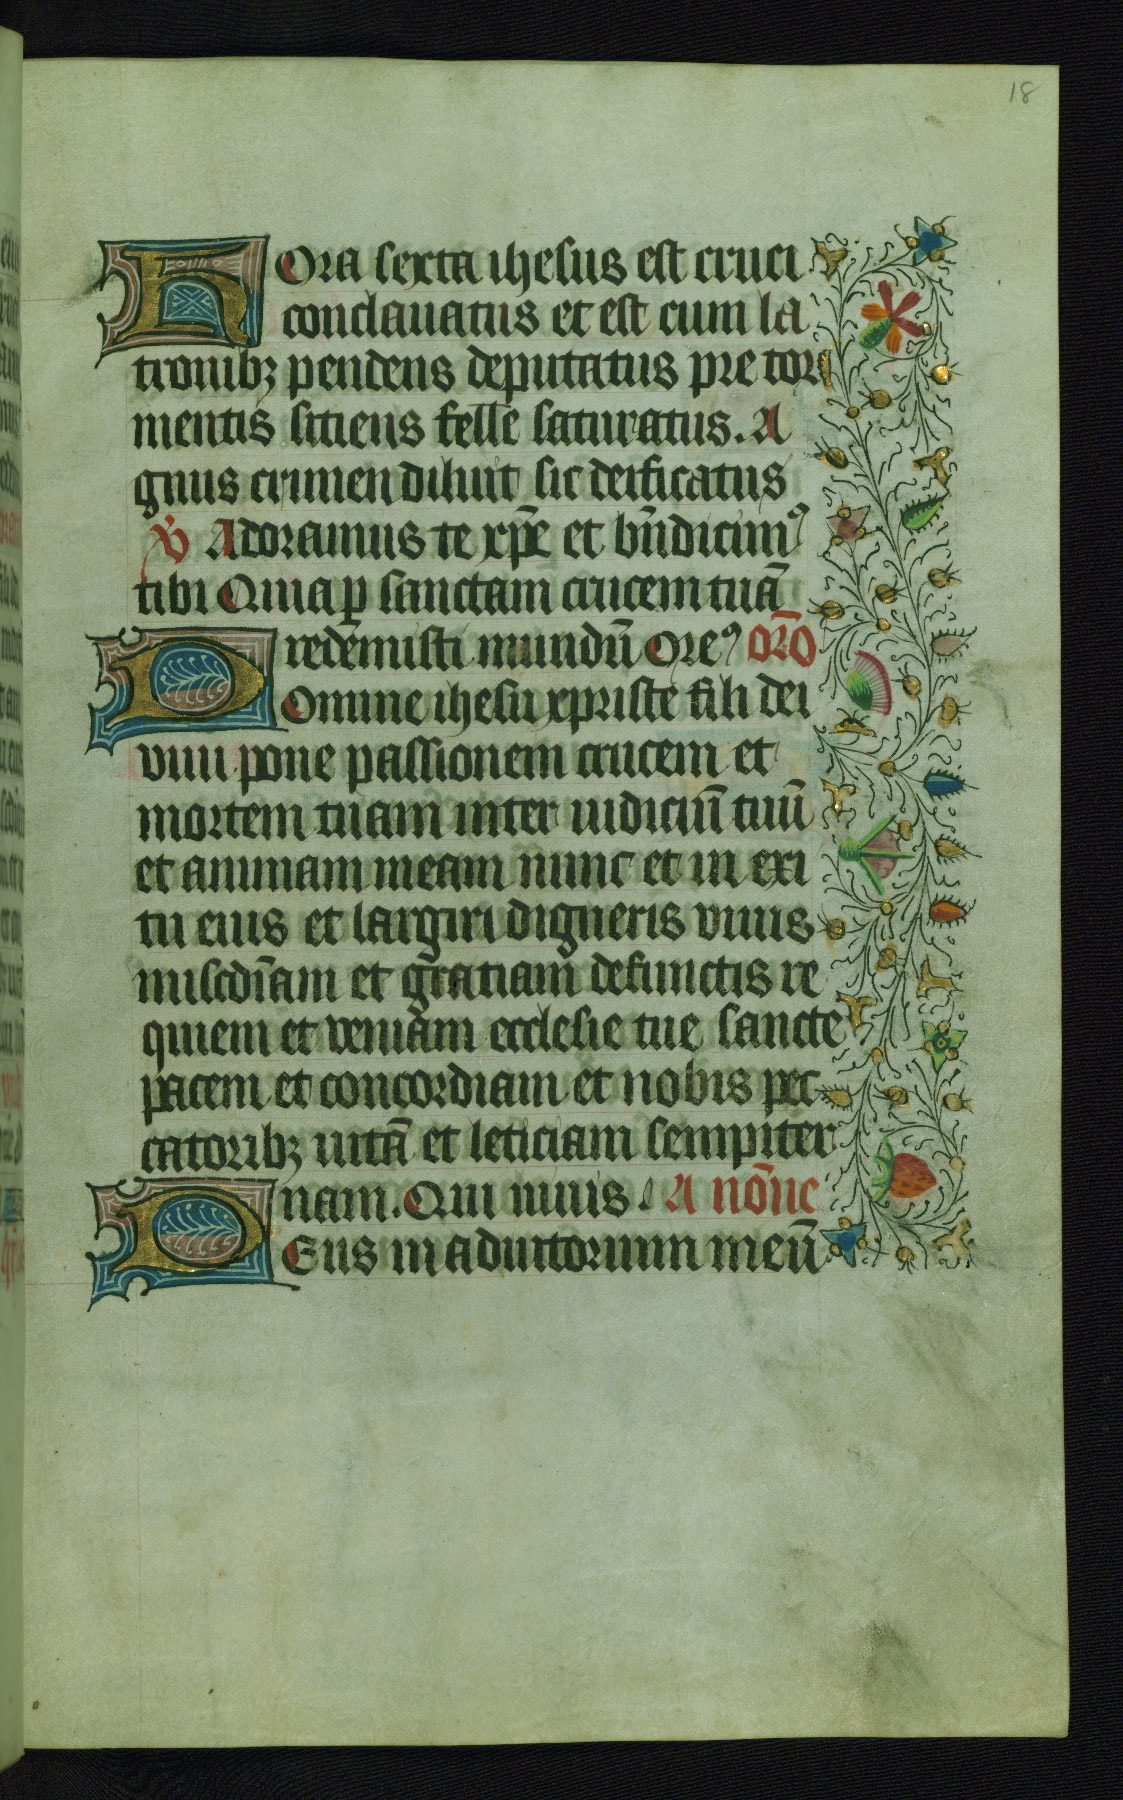 18
Hora sexta ihesus est cruci
conclauatus et est cum la
tronibꝫ pendens deputatus pre tor
mentis sitiens felle saturatus. A
gnus crimen diluit sic deificatus
℣ Adoramus te xp̄e et bn̄dicimꝰ
tibi Quia ꝑ sanctam crucem tuā
redemisti mundū Oreꝰ orō
Domine ihesu xpriste fili dei
viui pone passionem crucem et
mortem tuam inter iudiciū tuū
et animam meam nunc et in exi
tu eius et largiri digneris viuis
miscdīam et gratiam defunctis re
quiem et veniam ecclesie tue sancte
pacem et concordiam et nobis pec
catoribꝫ uitā et leticiam sempiter
nam. Qui uiuis. A nōne
Deus in adiutorium meū